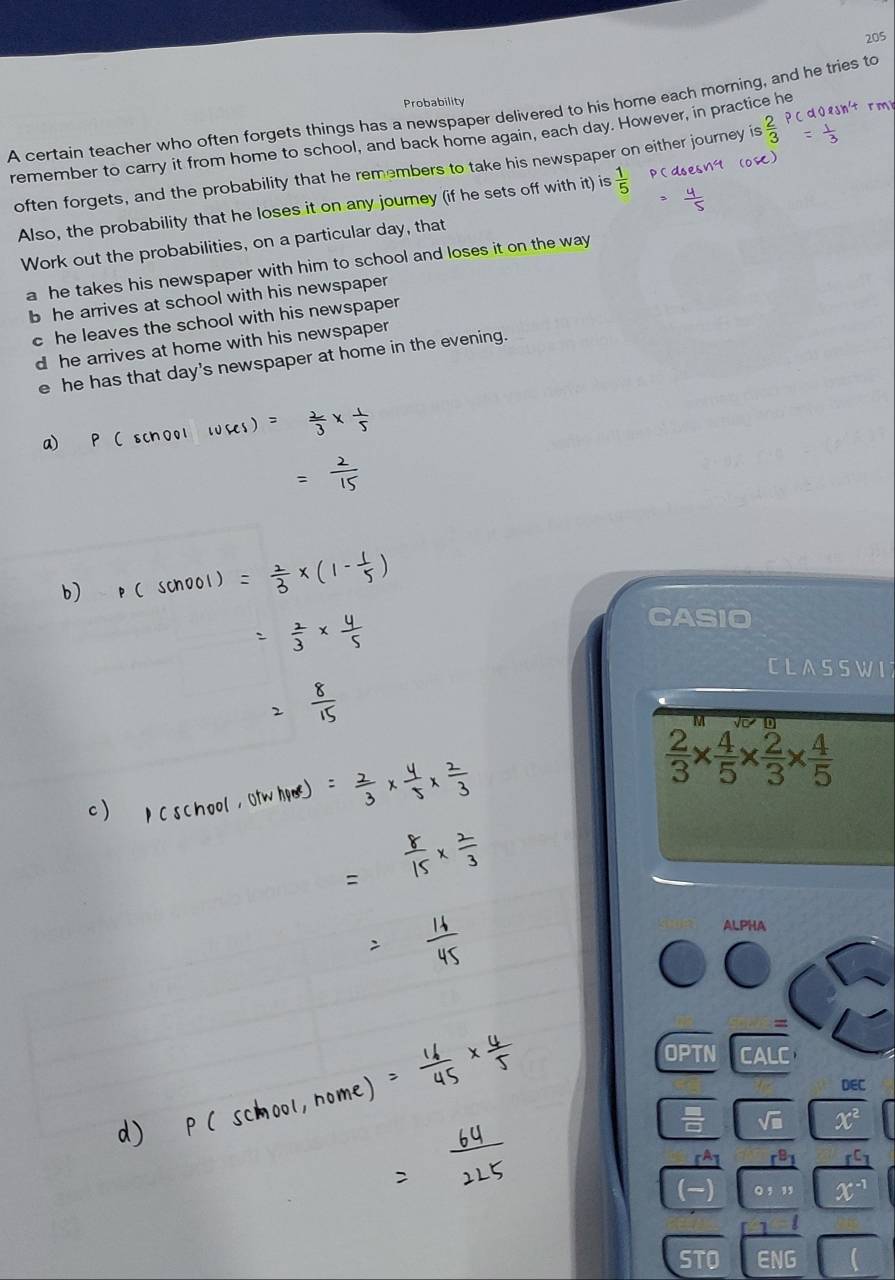 205
Probability
A certain teacher who often forgets things has a newspaper delivered to his home each morning, and he tries to
remember to carry it from home to school, and back home again, each day. However, in practice he
often forgets, and the probability that he remembers to take his newspaper on either journey is 2/3 P(doesn't
= 1/3
Also, the probability that he loses it on any journey (if he sets off with it) is 1/5 P(doesn't lose)
= 4/5
Work out the probabilities, on a particular day, that
a he takes his newspaper with him to school and loses it on the way
b he arrives at school with his newspaper
c he leaves the school with his newspaper
d he arrives at home with his newspaper
e he has that day's newspaper at home in the evening.
a) P(school loses) = 2/3 × 1/5
= 2/15
b) P(school) = 2/3 × (1 - 1/5)
= 2/3 × 4/5
= 8/15
c) P(school, otw home) = 2/3 × 4/5 × 2/3
= 8/15 × 2/3
= 16/45
d) P(school, home) = 16/45 × 4/5
= 64/225
CASIO
CLASSWI
M √c/ D
2/3×4/5×2/3×4/5
SHIFT ALPHA
=
OPTN CALC
DEC
√ x²
A B C
(−) ° ' '' x⁻¹
STO ENG (